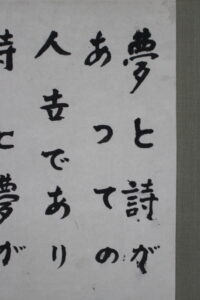 夢と詩が
あつての
人吉であり
と夢が